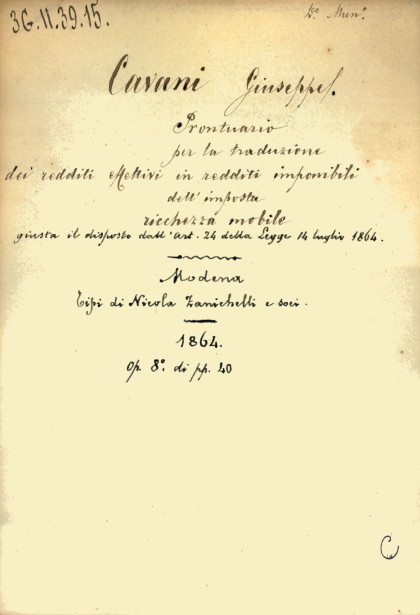 36.11.39.15.
Do. Mun.o
Cavani Giuseppe.
Prontuario
per la traduzione
dei redditi effettivi in redditi imponibili
dell'imposta
ricchezza mobile
giusta il disposto dall'art. 24 della Legge 14 luglio 1864.
Modena
Tipi di Nicola Zanichelli e soci.
1864.
Op. 8.o di pp. 40
C